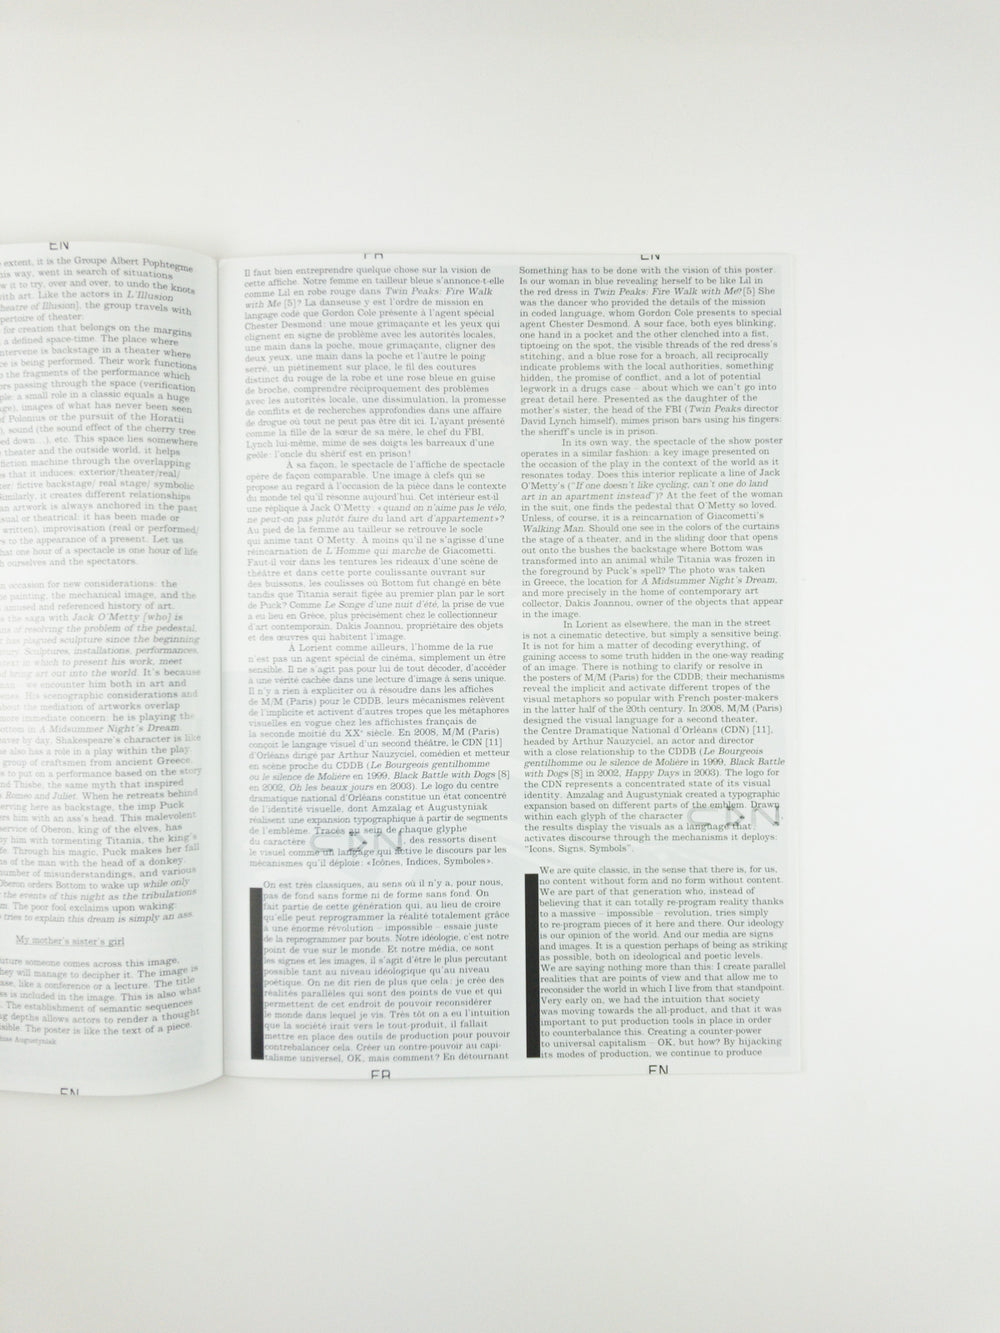 EN
extent, it is the Groupe Albert Pophtegme
his way, went in search of situations
w it to try, over and over, to undo the knots
ith art. Like the actors in L'Illusion
heatre of Illusion], the group travels with
pertoire of theater:
for creation that belongs on the margins
a defined space-time. The place where
ntervene is backstage in a theater where
ce is being performed. Their work functions
o the fragments of the performance which
ors passing through the space (verification
ple: a small role in a classic equals a huge
age), images of what has never been seen
f Polonius or the pursuit of the Horatii
), sound (the sound effect of the cherry tree
ed down…), etc. This space lies somewhere
theater and the outside world, it helps
fiction machine through the overlapping
s that it induces: exterior/theater/real/
ter/ fictive backstage/ real stage/ symbolic
Similarly, it creates different relationships
an artwork is always anchored in the past
sual or theatrical: it has been made or
written), improvisation (real or performed/
s to the appearance of a present. Let us
hat one hour of a spectacle is one hour of life
h ourselves and the spectators.
n occasion for new considerations: the
e painting, the mechanical image, and the
amused and referenced history of art.
s the saga with Jack O'Metty [who] is
ns of resolving the problem of the pedestal,
t has plagued sculpture since the beginning
tury. Sculptures, installations, performances,
text in which to present his work, meet
d bring art out into the world. It's because
man – we encounter him both in art and
enes. His scenographic considerations and
about the mediation of artworks overlap
more immediate concern: he is playing the
ottom in A Midsummer Night's Dream
eaver by day. Shakespeare's character is like
e also has a role in a play within the play.
group of craftsmen from ancient Greece,
s to put on a performance based on the story
nd Thisbe, the same myth that inspired
Romeo and Juliet. When he retreats behind
erving here as backstage, the imp Puck
rs him with an ass's head. This malevolent
service of Oberon, king of the elves, has
y him with tormenting Titania, the king's
fe. Through his magic, Puck makes her fall
s of the man with the head of a donkey.
number of misunderstandings, and various
Oberon orders Bottom to wake up while only
the events of this night as the tribulations
m. The poor fool exclaims upon waking:
tries to explain this dream is simply an ass.
My mother's sister's girl
uture someone comes across this image,
hey will manage to decipher it. The image is
ase, like a conference or a lecture. The title
ss is included in the image. This is also what
. The establishment of semantic sequences
ng depths allows actors to render a thought
isible. The poster is like the text of a piece.
hias Augustyniak
EN
FR
Il faut bien entreprendre quelque chose sur la vision de
cette affiche. Notre femme en tailleur bleue s'annonce-t-elle
comme Lil en robe rouge dans Twin Peaks: Fire Walk
with Me [5]? La danseuse y est l'ordre de mission en
langage codé que Gordon Cole présente à l'agent spécial
Chester Desmond: une moue grimaçante et les yeux qui
clignent en signe de problème avec les autorités locales,
une main dans la poche, moue grimaçante, cligner des
deux yeux, une main dans la poche et l'autre le poing
serré, un piétinement sur place, le fil des coutures
distinct du rouge de la robe et une rose bleue en guise
de broche, comprendre réciproquement des problèmes
avec les autorités locale, une dissumulation, la promesse
de conflits et de recherches approfondies dans une affaire
de drogue où tout ne peut pas être dit ici. L'ayant présenté
comme la fille de la sœur de sa mère, le chef du FBI,
Lynch lui-même, mime de ses doigts les barreaux d'une
geôle: l'oncle du shérif est en prison!
A sa façon, le spectacle de l'affiche de spectacle
opère de façon comparable. Une image à clefs qui se
propose au regard à l'occasion de la pièce dans le contexte
du monde tel qu'il résonne aujourd'hui. Cet intérieur est-il
une réplique à Jack O'Metty: «quand on n'aime pas le vélo,
ne peut-on pas plutôt faire du land art d'appartement»?
Au pied de la femme au tailleur se retrouve le socle
qui anime tant O'Metty. A moins qu'il ne s'agisse d'une
réincarnation de L'Homme qui marche de Giacometti.
Faut-il voir dans les tentures les rideaux d'une scène de
théâtre et dans cette porte coulissante ouvrant sur
des buissons, les coulisses où Bottom fut changé en bête
tandis que Titania serait figée au premier plan par le sort
de Puck? Comme Le Songe d'une nuit d'été, la prise de vue
a eu lieu en Grèce, plus précisément chez le collectionneur
d'art contemporain, Dakis Joannou, propriétaire des objets
et des œuvres qui habitent l'image.
A Lorient comme ailleurs, l'homme de la rue
n'est pas un agent spécial de cinéma, simplement un être
sensible. Il ne s'agit pas pour lui de tout décoder, d'accéder
a une vérité cachée dans une lecture d'image à sens unique.
Il n'y a rien à expliciter ou à résoudre dans les affiches
de M/M (Paris) pour le CDDB, leurs mécanismes relèvent
de l'implicite et activent d'autres tropes que les métaphores
visuelles en vogue chez les affichistes français de
la seconde moitié du XXe siècle. En 2008, M/M (Paris)
conçoit le langage visuel d'un second théâtre, le CDN [11]
d'Orléans dirigé par Arthur Nauzyciel, comédien et metteur
en scène proche du CDDB (Le Bourgeois gentilhomme
ou le silence de Molière en 1999, Black Battle with Dogs [8]
en 2002, Oh les beaux jours en 2003). Le logo du centre
dramatique national d'Orléans constitue un état concentré
de l'identité visuelle, dont Amzalag et Augustyniak
réalisent une expansion typographique à partir de segments
de l'embleme. Tracés au sein de chaque glyphe
du caractère CDN, des ressorts disent
le visuel comme un langage qui active le discours par les
mécanismes qu'il déploie: «Icônes, Indices, Symboles».
On est très classiques, au sens où il n'y a, pour nous,
pas de fond sans forme ni de forme sans fond. On
fait partie de cette génération qui, au lieu de croire
qu'elle peut reprogrammer la réalité totalement grâce
à une énorme révolution – impossible – essaie juste
de la reprogrammer par bouts. Notre idéologie, c'est notre
point de vue sur le monde. Et notre média, ce sont
les signes et les images, il s'agit d'être le plus percutant
possible tant au niveau idéologique qu'au niveau
poétique. On ne dit rien de plus que cela: je crée des
réalités parallèles qui sont des points de vue et qui
permettent de cet endroit de pouvoir reconsidérer
le monde dans lequel je vis. Très tôt on a eu l'intuition
que la société irait vers le tout-produit, il fallait
mettre en place des outils de production pour pouvoir
contrebalancer cela. Créer un contre-pouvoir au capi-
talisme universel, OK, mais comment? En détournant
FR
EN
Something has to be done with the vision of this poster.
Is our woman in blue revealing herself to be like Lil in
the red dress in Twin Peaks: Fire Walk with Me?[5] She
was the dancer who provided the details of the mission
in coded language, whom Gordon Cole presents to special
agent Chester Desmond. A sour face, both eyes blinking,
one hand in a pocket and the other clenched into a fist,
tiptoeing on the spot, the visible threads of the red dress's
stitching, and a blue rose for a broach, all reciprocally
indicate problems with the local authorities, something
hidden, the promise of conflict, and a lot of potential
legwork in a drugs case – about which we can't go into
great detail here. Presented as the daughter of the
mother's sister, the head of the FBI (Twin Peaks director
David Lynch himself), mimes prison bars using his fingers:
the sheriff's uncle is in prison.
In its own way, the spectacle of the show poster
operates in a similar fashion: a key image presented on
the occasion of the play in the context of the world as it
resonates today. Does this interior replicate a line of Jack
O'Metty's ("If one doesn't like cycling, can't one do land
art in an apartment instead")? At the feet of the woman
in the suit, one finds the pedestal that O'Metty so loved.
Unless, of course, it is a reincarnation of Giacometti's
Walking Man. Should one see in the colors of the curtains
the stage of a theater, and in the sliding door that opens
out onto the bushes the backstage where Bottom was
transformed into an animal while Titania was frozen in
the foreground by Puck's spell? The photo was taken
in Greece, the location for A Midsummer Night's Dream,
and more precisely in the home of contemporary art
collector, Dakis Joannou, owner of the objects that appear
in the image.
In Lorient as elsewhere, the man in the street
is not a cinematic detective, but simply a sensitive being.
It is not for him a matter of decoding everything, of
gaining access to some truth hidden in the one-way reading
of an image. There is nothing to clarify or resolve in
the posters of M/M (Paris) for the CDDB; their mechanisms
reveal the implicit and activate different tropes of the
visual metaphors so popular with French poster-makers
in the latter half of the 20th century. In 2008, M/M (Paris)
designed the visual language for a second theater,
the Centre Dramatique National d'Orléans (CDN) [11],
headed by Arthur Nauzyciel, an actor and director
with a close relationship to the CDDB (Le Bourgeois
gentilhomme ou le silence de Molière in 1999, Black Battle
with Dogs [5] in 2002, Happy Days in 2003). The logo for
the CDN represents a concentrated state of its visual
identity. Amzalag and Augustyniak created a typographic
expansion based on different parts of the emblem. Drawn
within each glyph of the character CDN,
the results display the visuals as a language that
activates discourse through the mechanisms it deploys:
"Icons, Signs, Symbols".
We are quite classic, in the sense that there is, for us,
no content without form and no form without content.
We are part of that generation who, instead of
believing that it can totally re-program reality thanks
to a massive – impossible – revolution, tries simply
to re-program pieces of it here and there. Our ideology
is our opinion of the world. And our media are signs
and images. It is a question perhaps of being as striking
as possible, both on ideological and poetic levels.
We are saying nothing more than this: I create parallel
realities that are points of view and that allow me to
reconsider the world in which I live from that standpoint.
Very early on, we had the intuition that society
was moving towards the all-product, and that it was
important to put production tools in place in order
to counterbalance this. Creating a counter-power
to universal capitalism – OK, but how? By hijacking
its modes of production, we continue to produce
EN